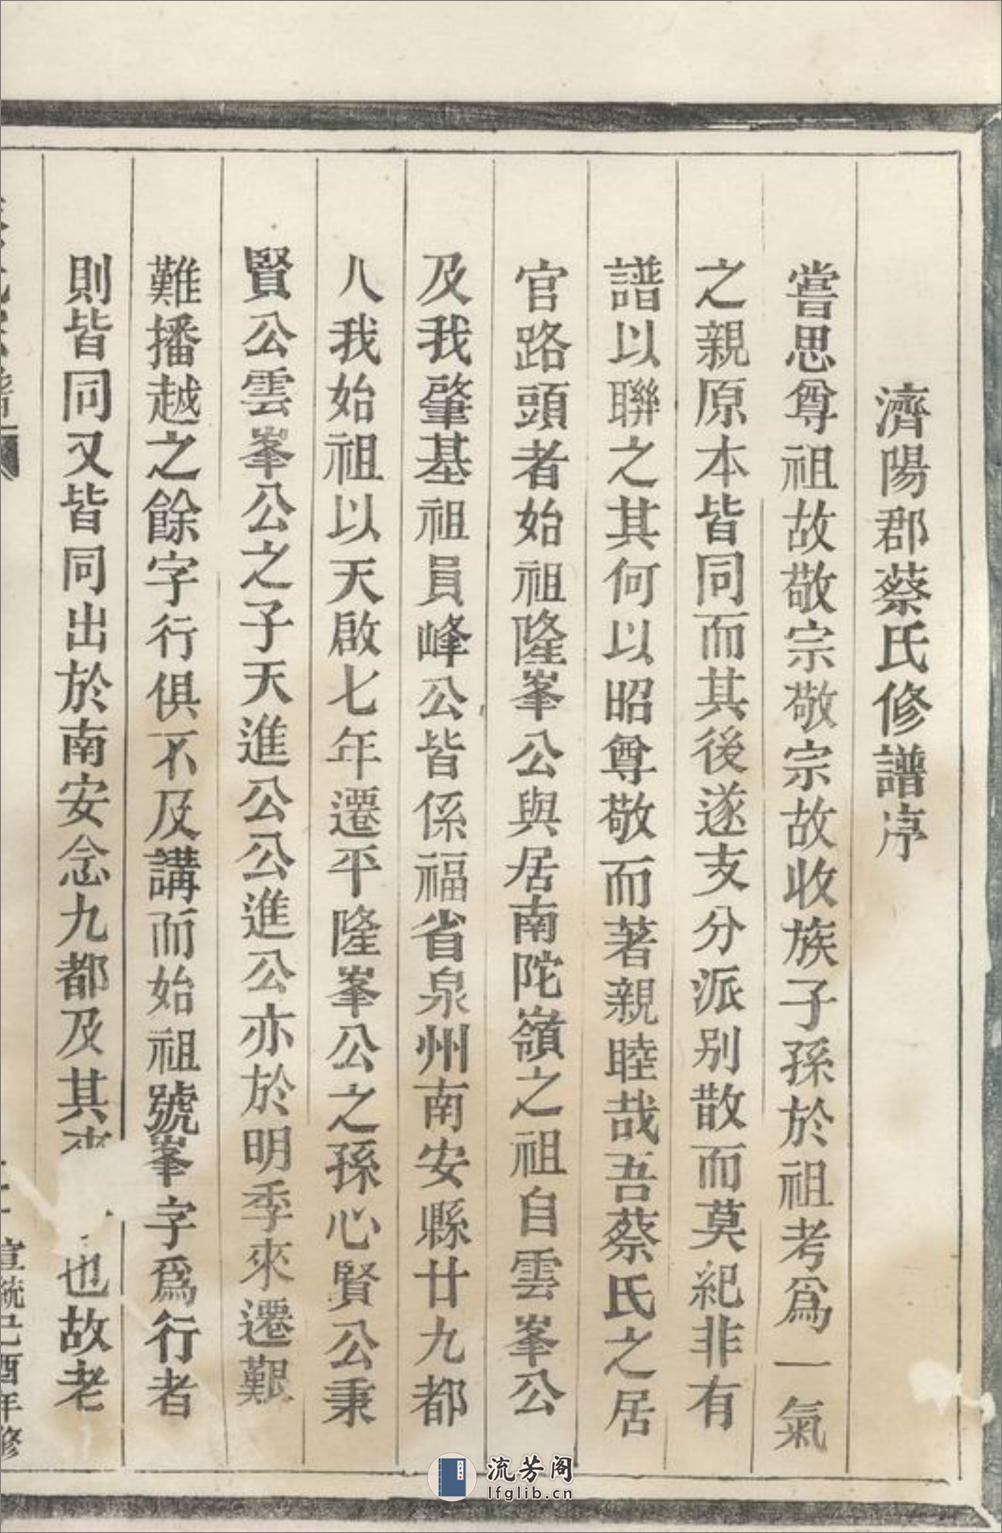 濟陽郡蔡氏修譜序
嘗思尊祖故敬宗敬宗故收族子孫於祖考爲一氣
之親原本皆同而其後遂支分派别散而莫紀非有
譜以聯之其何以昭尊敬而著親睦哉吾蔡氏之居
官路頭者始祖隆峯公與居南陀嶺之祖自雲峯公
及我肇基祖員峰公皆係福省泉州南安縣廿九都
人我始祖以天啟七年遷平隆峯公之孫心賢公秉
賢公雲峯公之子天進公公進公亦於明季來遷艱
難播越之餘字行俱不及講而始祖號峯字爲行者
則皆同又皆同出於南安念九都及其來也故老
宣統己酉年修
流芳阁
lfglib.cn